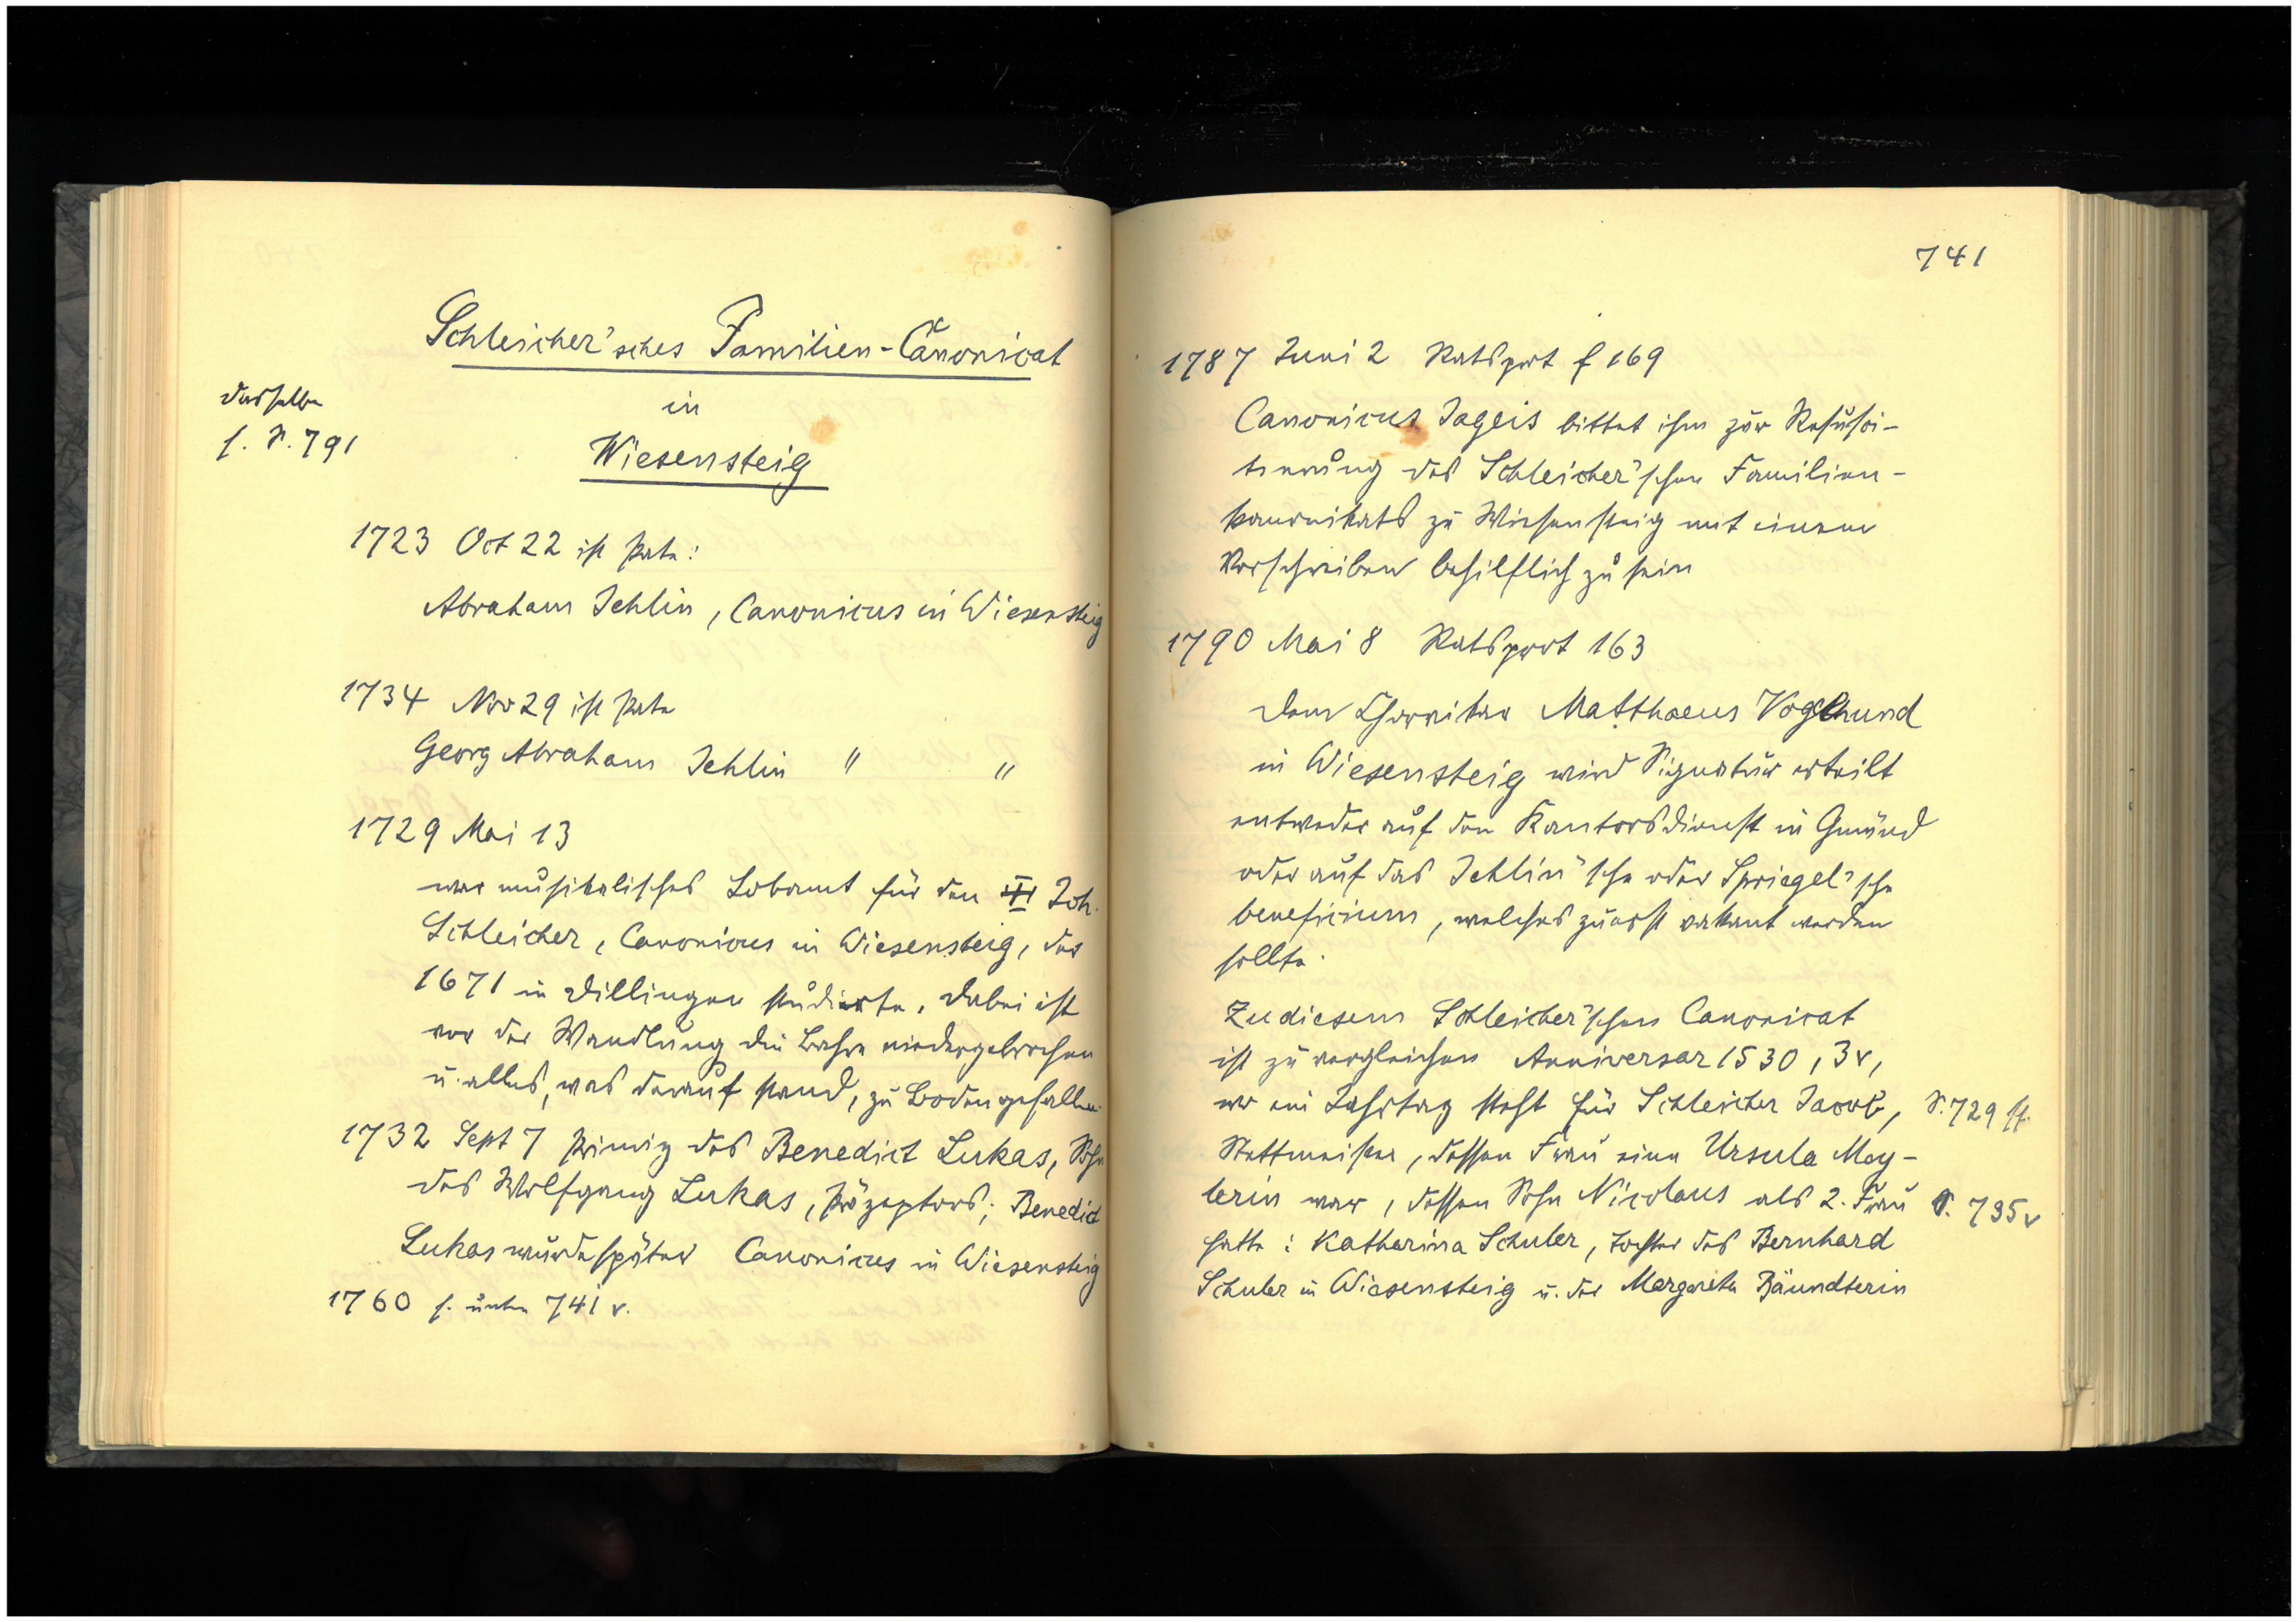 Schleicher'sches Familien-Canonicat
in
Wiesensteig
dasselbe
s. S. 791
1723 Oct 22 ist Pate:
Abraham Jehlin, Canonicus in Wiesensteig
1734 Nov 29 ist Pate
Georg Abraham Jehlin " "
1729 Mai 13
war musikalisches Lobamt für den Joh.
Schleicher, Canonicus in Wiesensteig, der
1671 in Dillingen studierte. Dabei ist
vor der Wandlung die Bahre niedergebrochen
u. alles, was darauf stand, zu Boden gefallen.
1732 Sept 7 Primiz des Benedict Lukas, Sohn
des Wolfgang Lukas, Präzeptors; Benedict
Lukas wurde später Canonicus in Wiesensteig
1760 s. unten 741 v.
741
1787 Juni 2 Ratsprot f 169
Canonicus Jageis bittet ihm zur Resusci-
tierung des Schleicher'schen Familien-
kanonikats zu Wiesensteig mit einem
Vorschreiben behilflich zu sein
1790 Mai 8 Ratsprot 163
Dem Chorvikar Matthaeus Voglhund
in Wiesensteig wird Signatur erteilt
entweder auf den Kantorsdienst in Gmünd
oder auf das Jehlin'sche oder Spriegel'sche
beneficium, welches zuerst vakant werden
sollte.
Zu diesem Schleicher'schen Canonicat
ist zu vergleichen Anniversar 1530, 3v,
wo ein Jahrtag steht für Schleicher Jacob, S. 729 ff.
Stettmeister, dessen Frau eine Ursula May-
lerin war, dessen Sohn Nicolaus als 2. Frau S. 735v
hatte: Katharina Schuler, Tochter des Bernhard
Schuler in Wiesensteig u. der Margareta Bäundterin